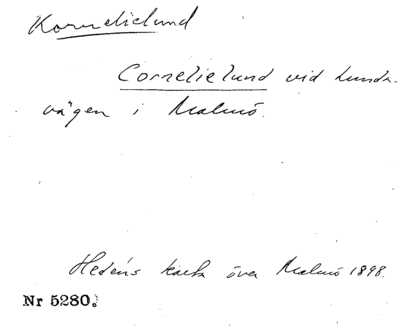 Kornelielund
Cornelielund vid Lunda-
vägen i Malmö.
Hedéns karta över Malmö 1898.
Nr 5280.